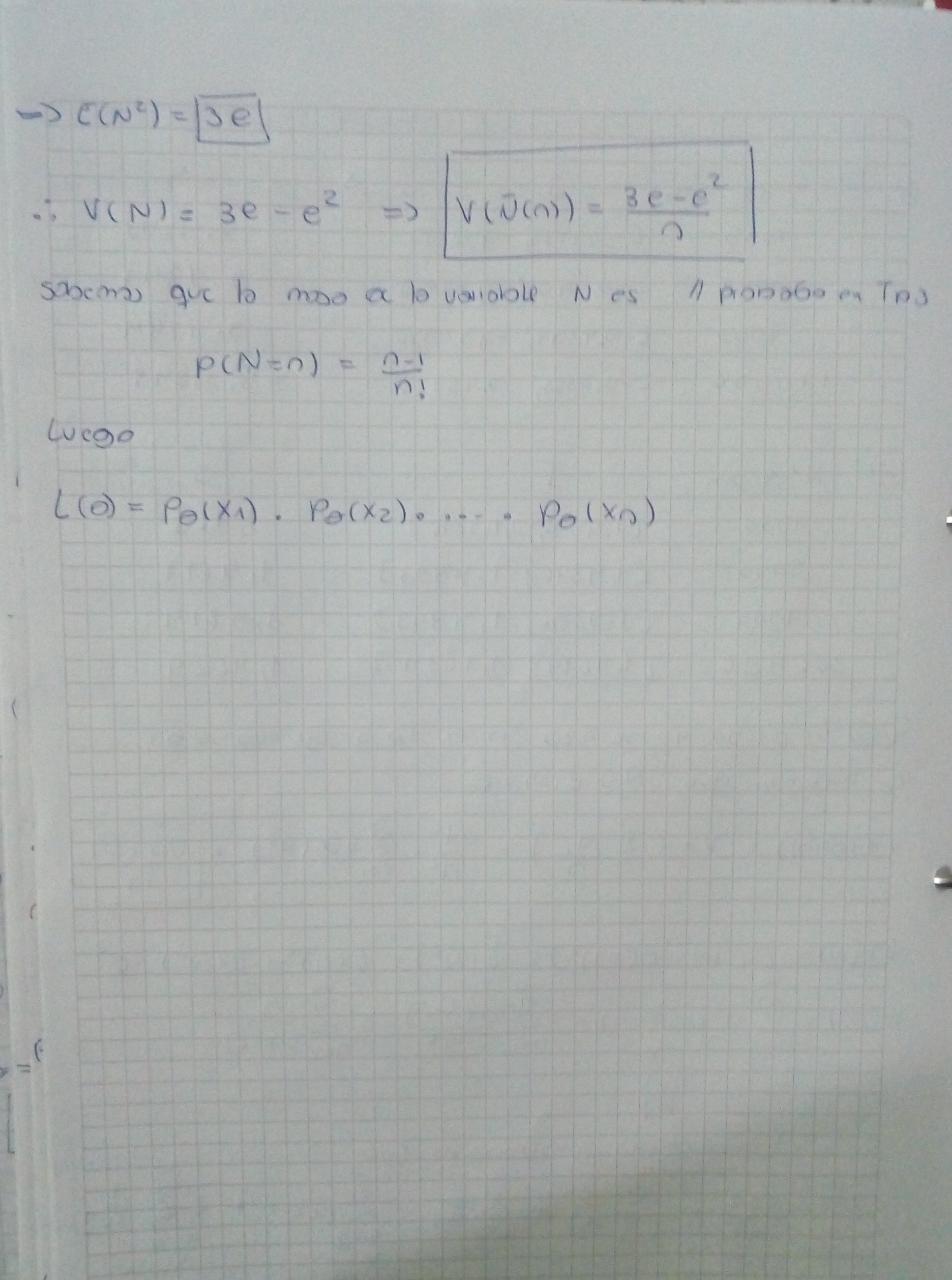 => E(N²) = 3e
∴ V(N) = 3e - e² => V(N̄(n)) = (3e - e²)/n
sabemos que la masa de la variable N es // probado en TP3
P(N=n) = (n-1)/n!
Luego
L(θ) = Pθ(X1) . Pθ(X2) . .... . Pθ(Xn)